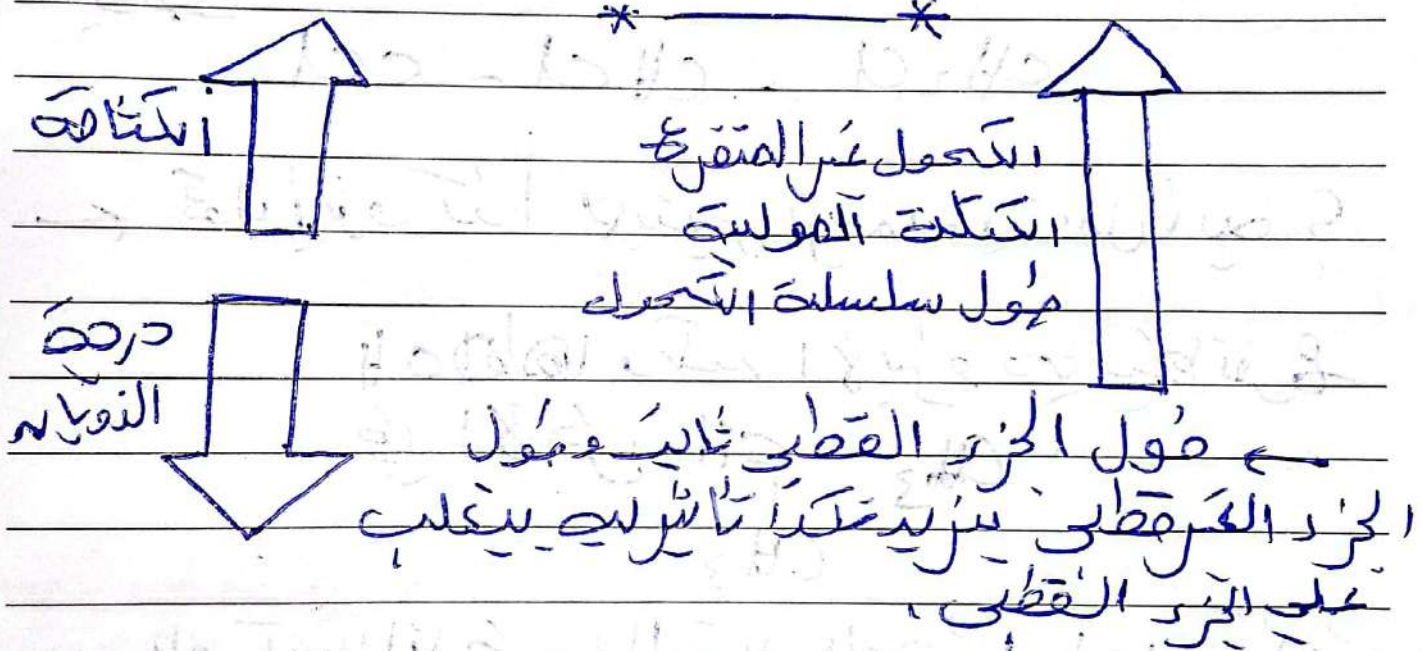 الكحول غير المتفرع
الكتلة المولية
طول سلسلة الكحول
الكثافة
درجة
الذوبان
← طول الجزء القطبي ثابت وطول
الجزء الغير قطبي بيزيد فكدا تأثيره بيتغلب
علي الجزء القطبي.